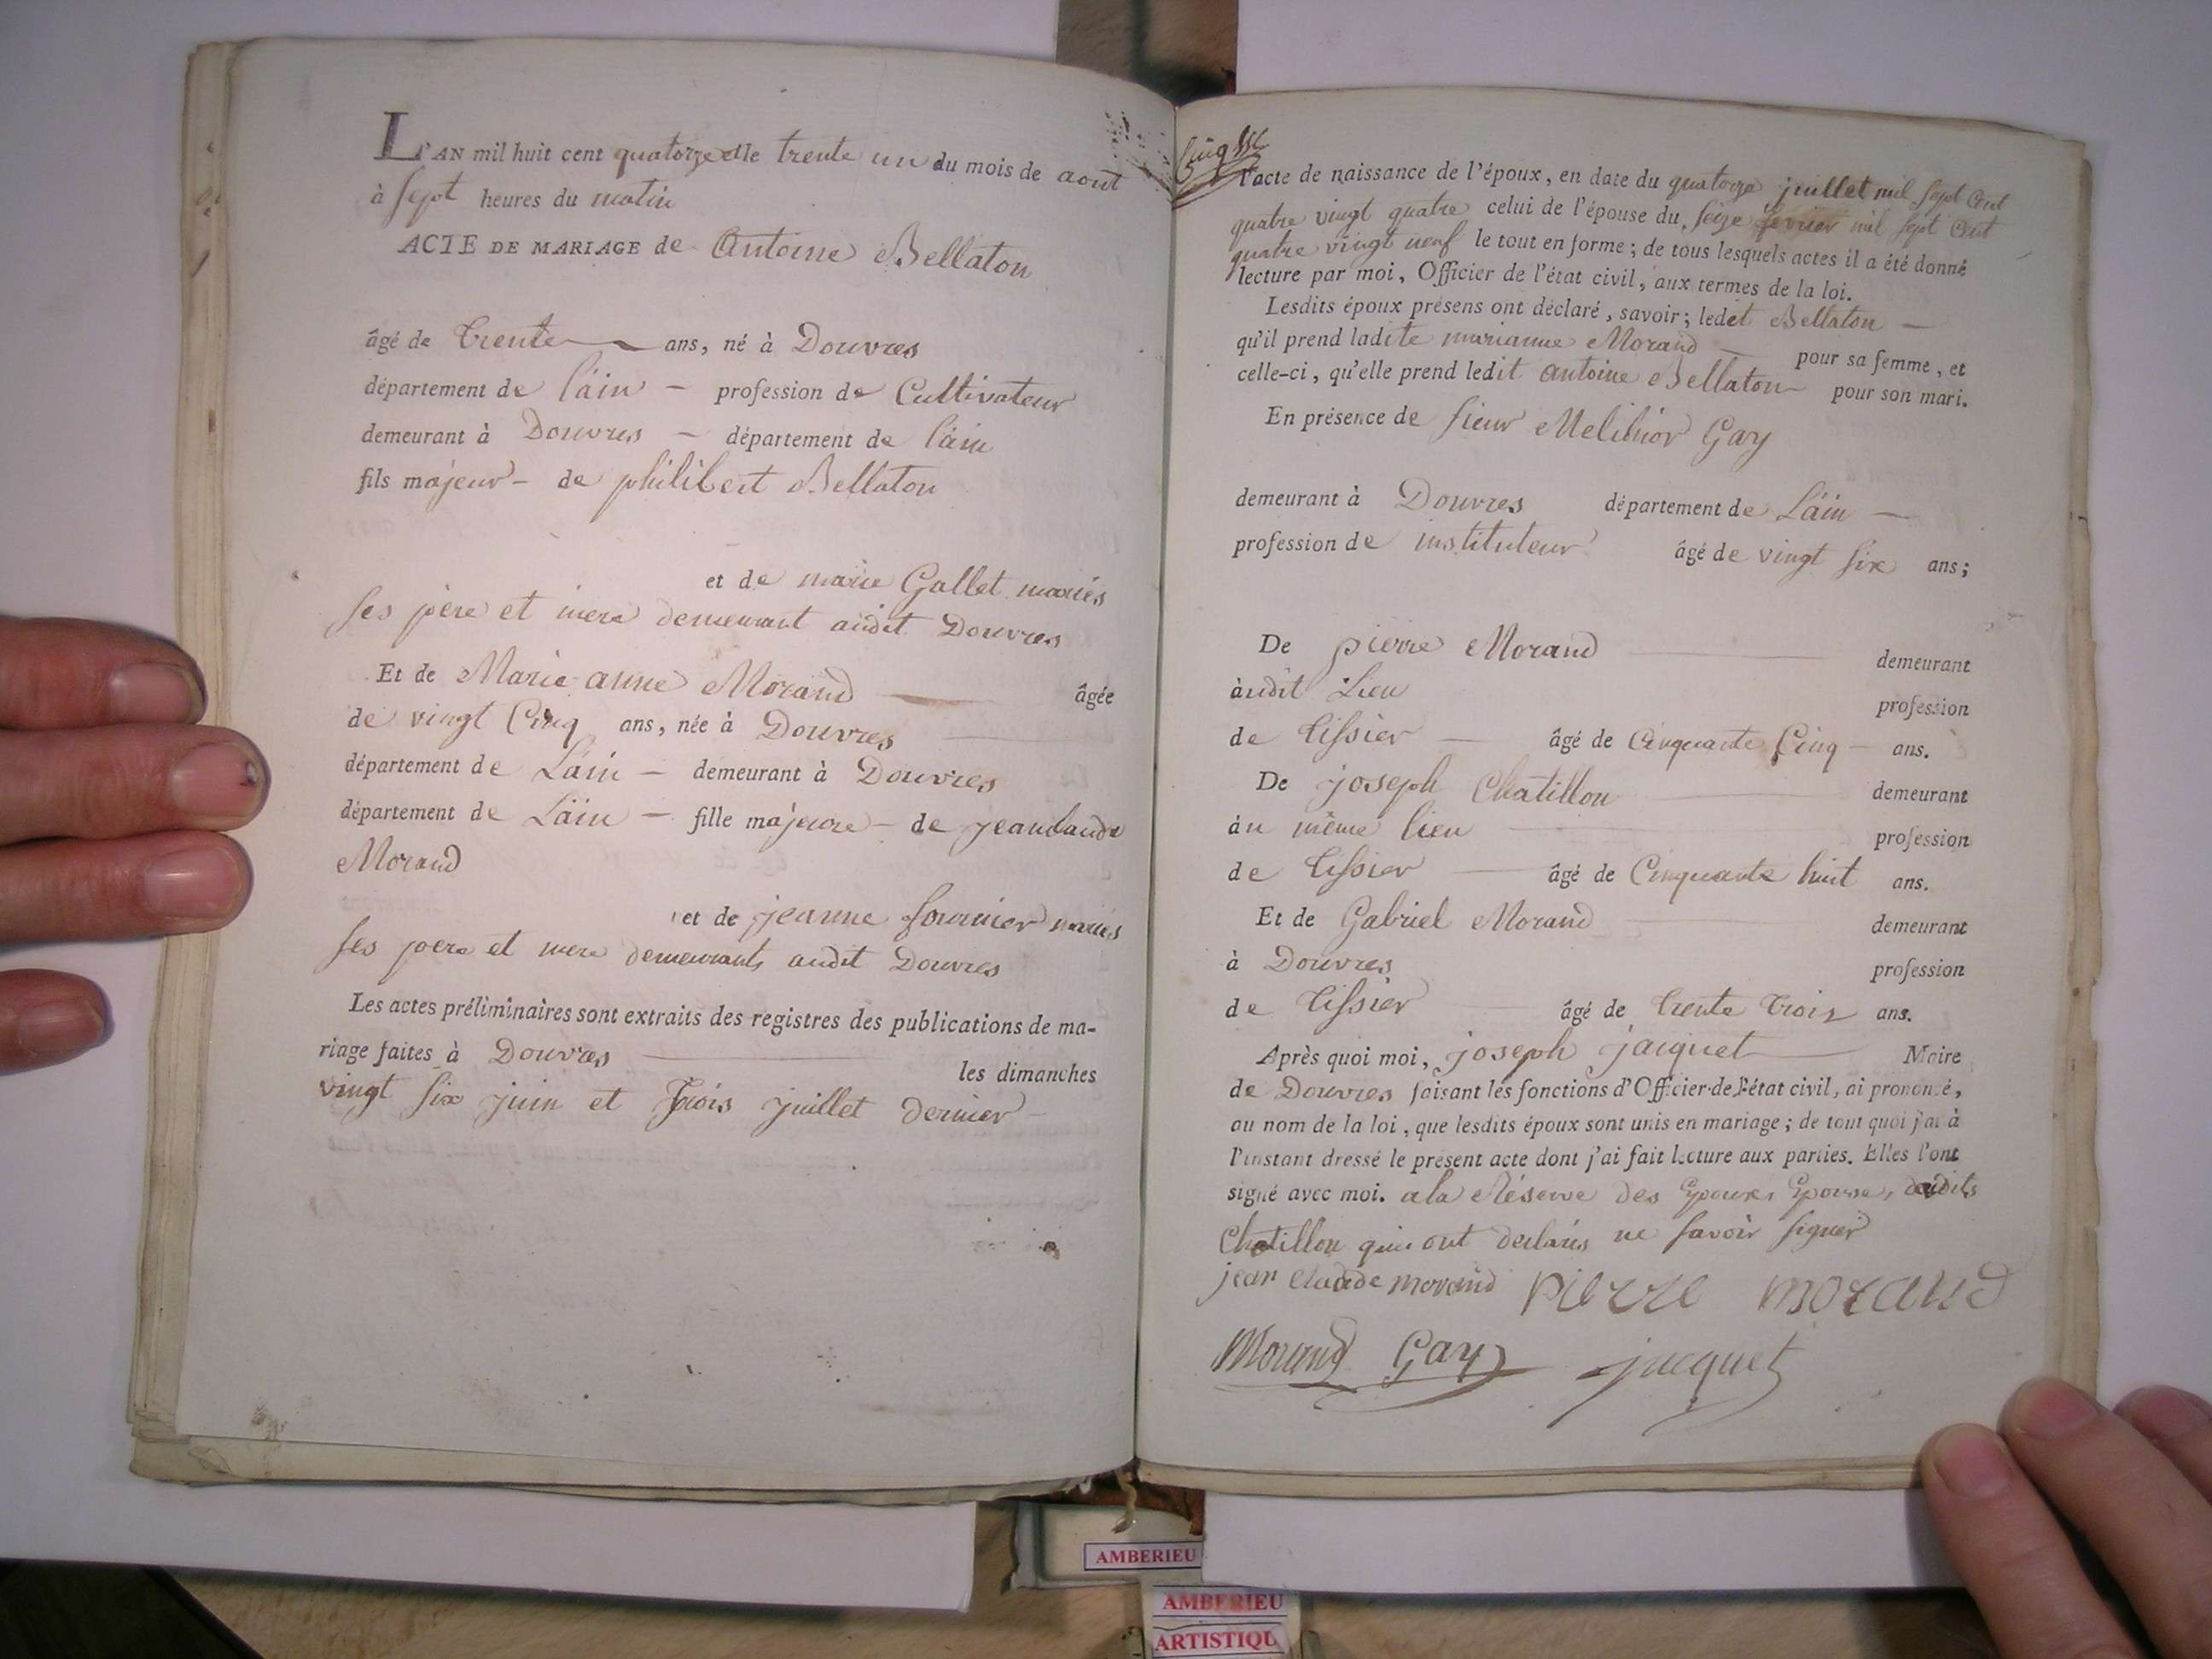 L'AN mil huit cent quatorze et le trente un du mois de aout
à sept heures du matin
ACTE DE MARIAGE de Antoine Bellaton
âgé de trente ans, né à Douvres
département de l'ain — profession de Cultivateur
demeurant à Douvres — département de l'ain
fils majeur — de philibert Bellaton
et de marie Gallet mariés
ses père et mere demeurant audit Douvres
Et de Marie anne Morand — âgée
de vingt Cinq ans, née à Douvres
département de L'ain — demeurant à Douvres
département de L'ain — fille majeure — de jeanclaude
Morand
et de jeanne fournier mariés
ses pere et mere demeurants audit Douvres
Les actes préliminaires sont extraits des registres des publications de ma-
riage faites à Douvres — les dimanches
vingt six juin et trois juillet dernier —
l'acte de naissance de l'époux, en date du quatorze juillet mil sept cent
quatre vingt quatre celui de l'épouse du seize fevrier mil sept cent
quatre vingt neuf le tout en forme; de tous lesquels actes il a été donné
lecture par moi, Officier de l'état civil, aux termes de la loi.
Lesdits époux présens ont déclaré, savoir; ledet Bellaton —
qu'il prend ladite marianne Morand — pour sa femme, et
celle-ci, qu'elle prend ledit antoine Bellaton — pour son mari.
En présence de sieur Melchior Gay
demeurant à Douvres département de L'ain —
profession de instituteur âgé de vingt six ans;
De pierre Morand — demeurant
audit Lieu profession
de tissier — âgé de Cinquante Cinq — ans.
De joseph Chatillon — demeurant
au même lieu profession
de tissier — âgé de Cinquante huit ans.
Et de Gabriel Morand demeurant
à Douvres profession
de tissier âgé de trente trois ans.
Après quoi moi, joseph jacquet — Maire
de Douvres faisant les fonctions d'Officier de l'état civil, ai prononcé,
au nom de la loi, que lesdits époux sont unis en mariage; de tout quoi j'ai à
l'instant dressé le présent acte dont j'ai fait lecture aux parties. Elles l'ont
signé avec moi. a la Réserve des Epoux, Epouse, desdits
Chatillon qui ont declarés ne savoir signer
jean claude morand pierre morand
Morand Gay jacquet
AMBERIEU
AMBERIEU
ARTISTIQU